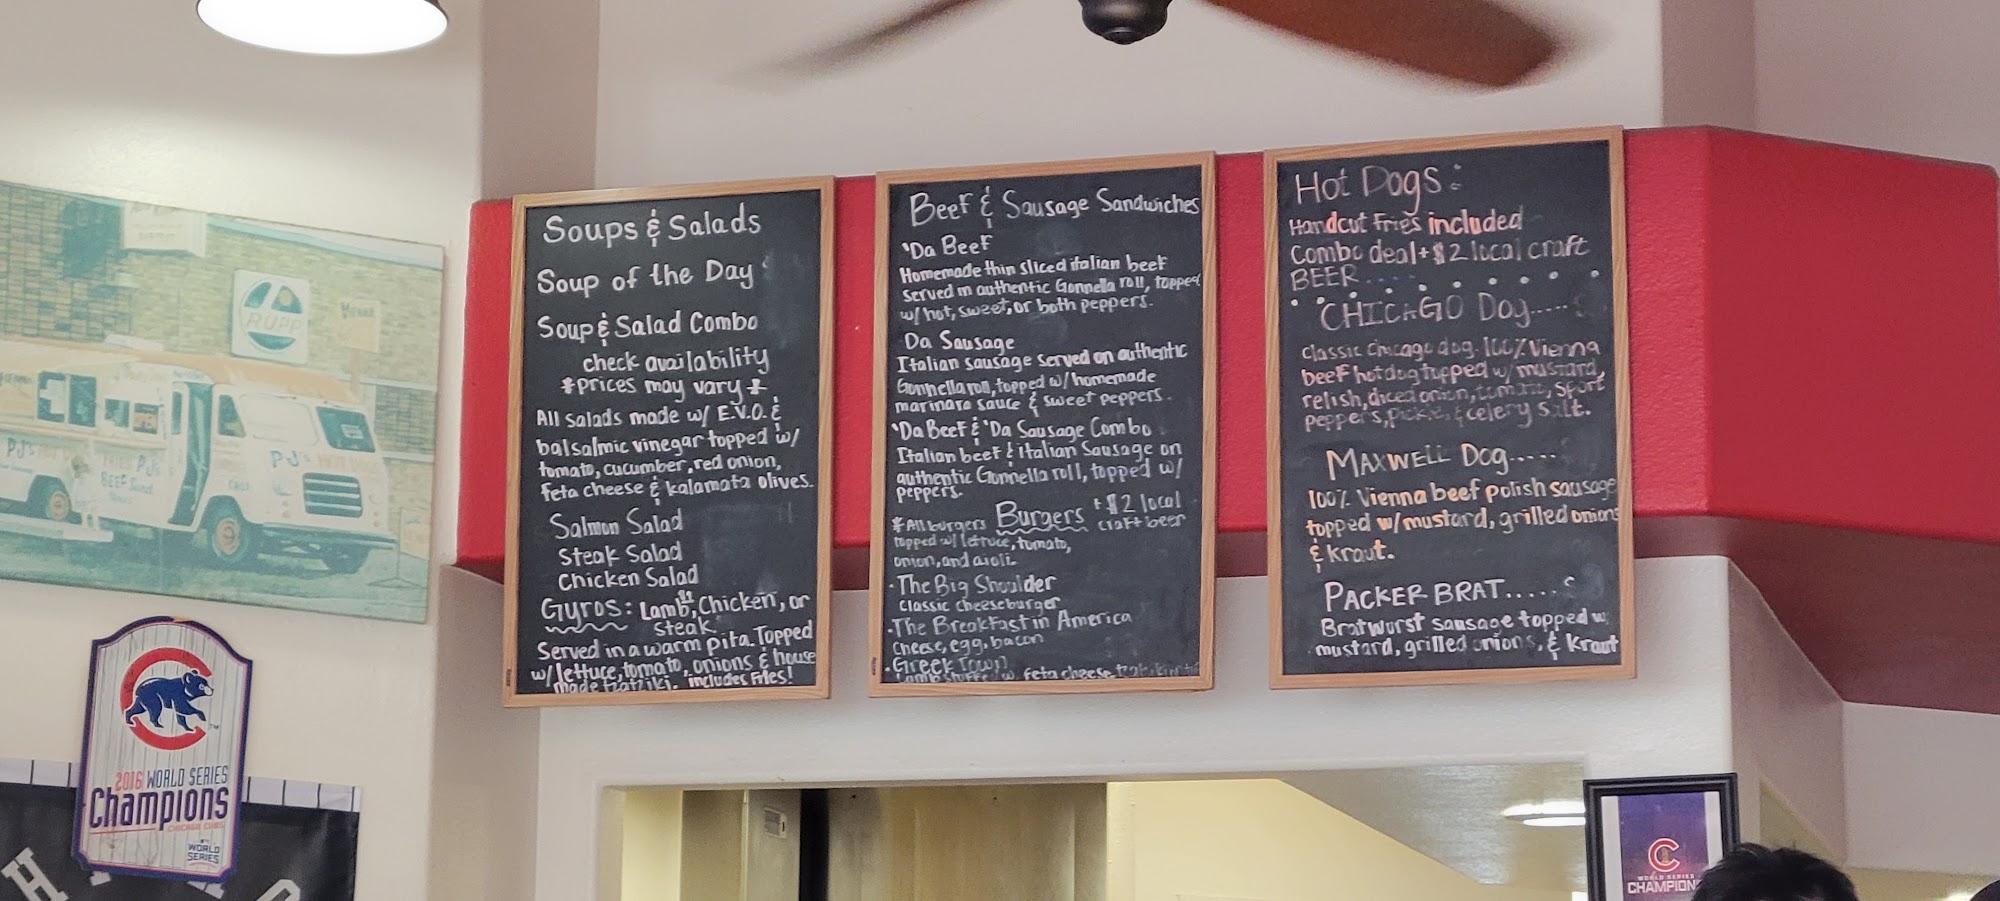 Soups & Salads
Soup of the Day
Soup & Salad Combo
check availability
*prices may vary*
All salads made w/ E.V.O. &
balsalmic vinegar topped w/
tomato, cucumber, red onion,
feta cheese & kalamata olives.
Salmon Salad
Steak Salad
Chicken Salad
Gyros: Lamb, Chicken, or
steak
Served in a warm pita. Topped
w/ lettuce, tomato, onions & house
made tzatziki. 'includes Fries!
Beef & Sausage Sandwiches
'Da Beef
Homemade thin sliced italian beef
served in authentic Gonnella roll, topped
w/ hot, sweet, or both peppers.
Da Sausage
Italian sausage served on authentic
Gonnella roll, topped w/ homemade
marinara sauce & sweet peppers.
'Da Beef & 'Da Sausage Combo
Italian beef & Italian Sausage on
authentic Gonnella roll, topped w/
peppers.
*All burgers Burgers +$2 local
craft beer
topped w/ lettuce, tomato,
onion, and aioli.
·The Big Shoulder
Classic cheeseburger
·The Breakfast in America
Cheese, egg, bacon
·Greek Town
w. feta cheese
Hot Dogs:
Handcut Fries included
Combo deal +$2 local craft
BEER....
CHICAGO Dog.....
Classic Chicago dog. 100% Vienna
beef hotdog topped w/ mustard,
relish, diced onion, tomato, sport
peppers, pickle, & celery salt.
MAXWELL Dog.....
100% Vienna beef polish sausage
topped w/ mustard, grilled onions
& kraut.
PACKER BRAT.....
Bratwurst sausage topped w/
mustard, grilled onions, & kraut
RUPP
PJ's
BEEF
C
2016 WORLD SERIES
Champions
CHICAGO CUBS
WORLD
SERIES
C
WORLD SERIES
CHAMPION